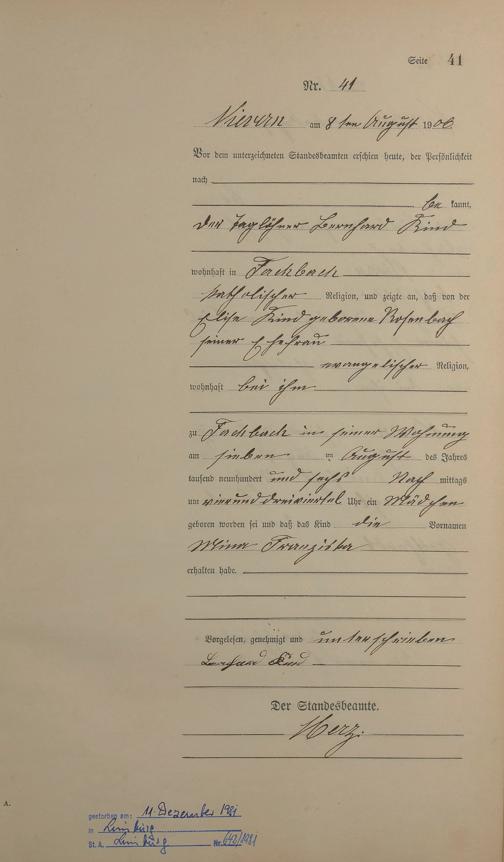 Seite 41
Nr. 41
Nievern am 8ten August 1906
Vor dem unterzeichneten Standesbeamten erschien heute, der Persönlichkeit
nach
be kannt,
der Taglöhner Bernhard Kind
wohnhaft in Fachbach
katholischer Religion, und zeigte an, daß von der
Elise Kind geborene Rosenbach
seiner Ehefrau
evangelischer Religion,
wohnhaft bei ihm
zu Fachbach in seiner Wohnung
am sieben August des Jahres
tausend neunhundert und sechs Nach mittags
um vierunddreiviertel Uhr ein Mädchen
geboren worden sei und daß das Kind die Vornamen
Mina Franziska
erhalten habe.
Vorgelesen, genehmigt und unterschrieben
Bernhard Kind
Der Standesbeamte.
Herz.
A.
gestorben am: 11. Dezember 1981
in Limburg
St. A. Limburg Nr. /1981